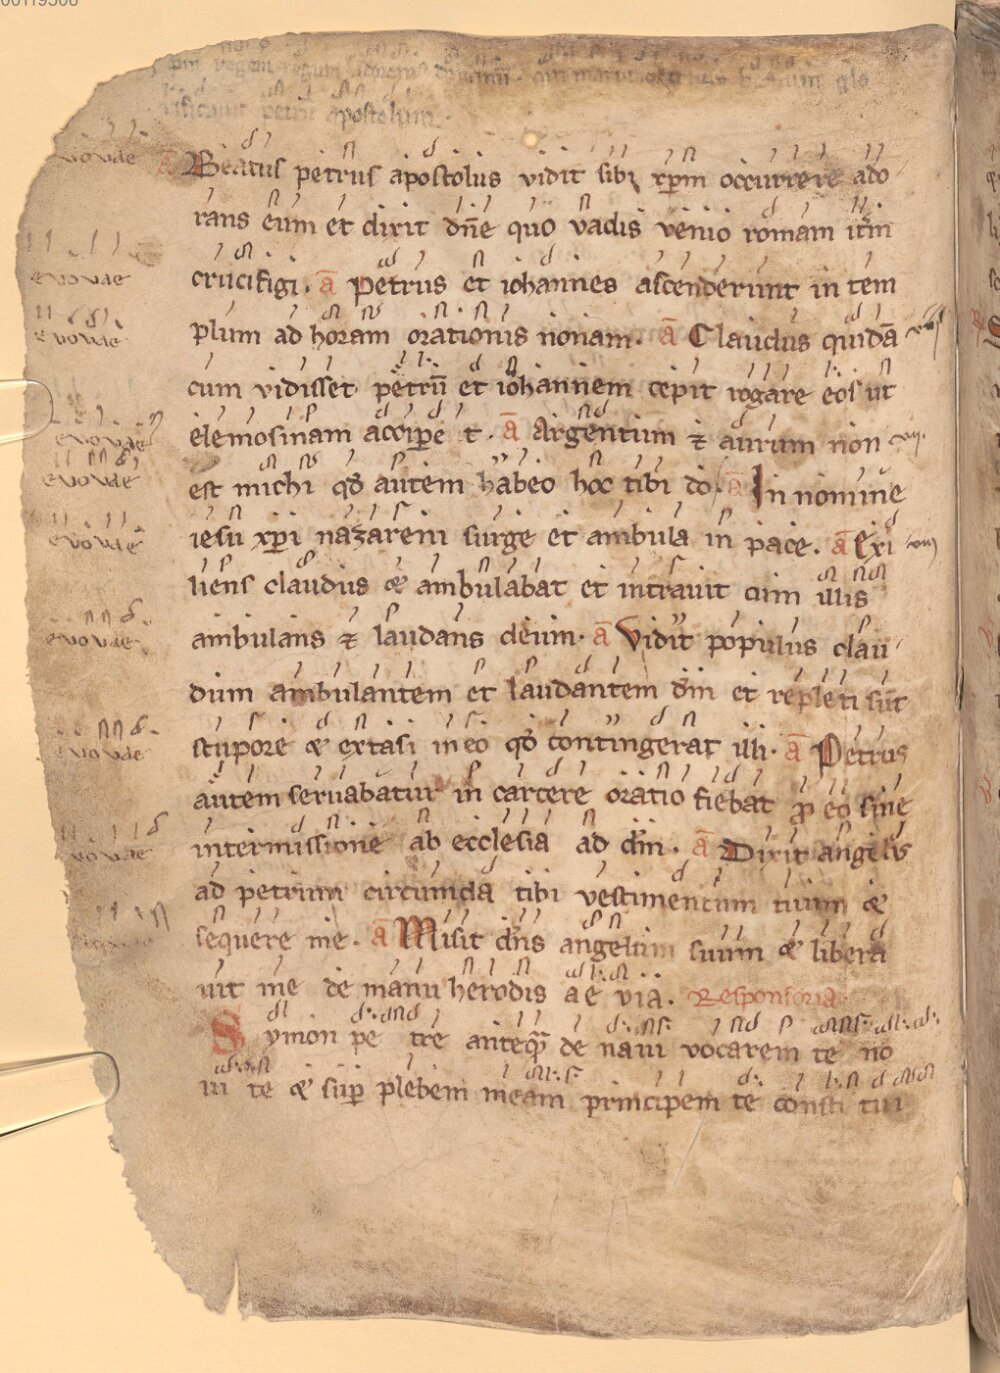 rificavit petrū apostolum
evovae
ā Beatus petrus apostolus vidit sibi xp̄m occurrere ado
rans eum et dixit dn̄e quo vadis venio romam it̄m
evovae
crucifigi. ā Petrus et iohannes ascenderunt in tem
evovae
plum ad horam orationis nonam. ā Claudus quidā
cum vidisset petrū et iohannem cepit rogare eos ut
evovae
elemosinam acciper& t. ā Argentum ⁊ aurum non
evovae
est michi qd̄ autem habeo hoc tibi do. ā In nomine
evovae
iesu xp̄i nazareni surge et ambula in pace. ā Exi
liens claudus & ambulabat et intravit cum illis
evovae
ambulans ⁊ laudans deum. ā Vidit populus clau
dum ambulantem et laudantem dm̄ et repleti sūt
evovae
stupore & extasi in eo qd̄ contingerat illi. ā Petrus
autem servabatur in carcere oratio fiebat p̄ eo sine
evovae
intermissione ab ecclesia ad dm̄. ā Dixit angelus
ad petrum circumda tibi vestimentum tuum &
sequere me. ā Misit dn̄s angelum suum & libera
vit me de manu herodis aevia. Responsoria
Symon petre anteq̄ de navi vocarem te no
vi te & sup̄ plebem meam principem te constitui